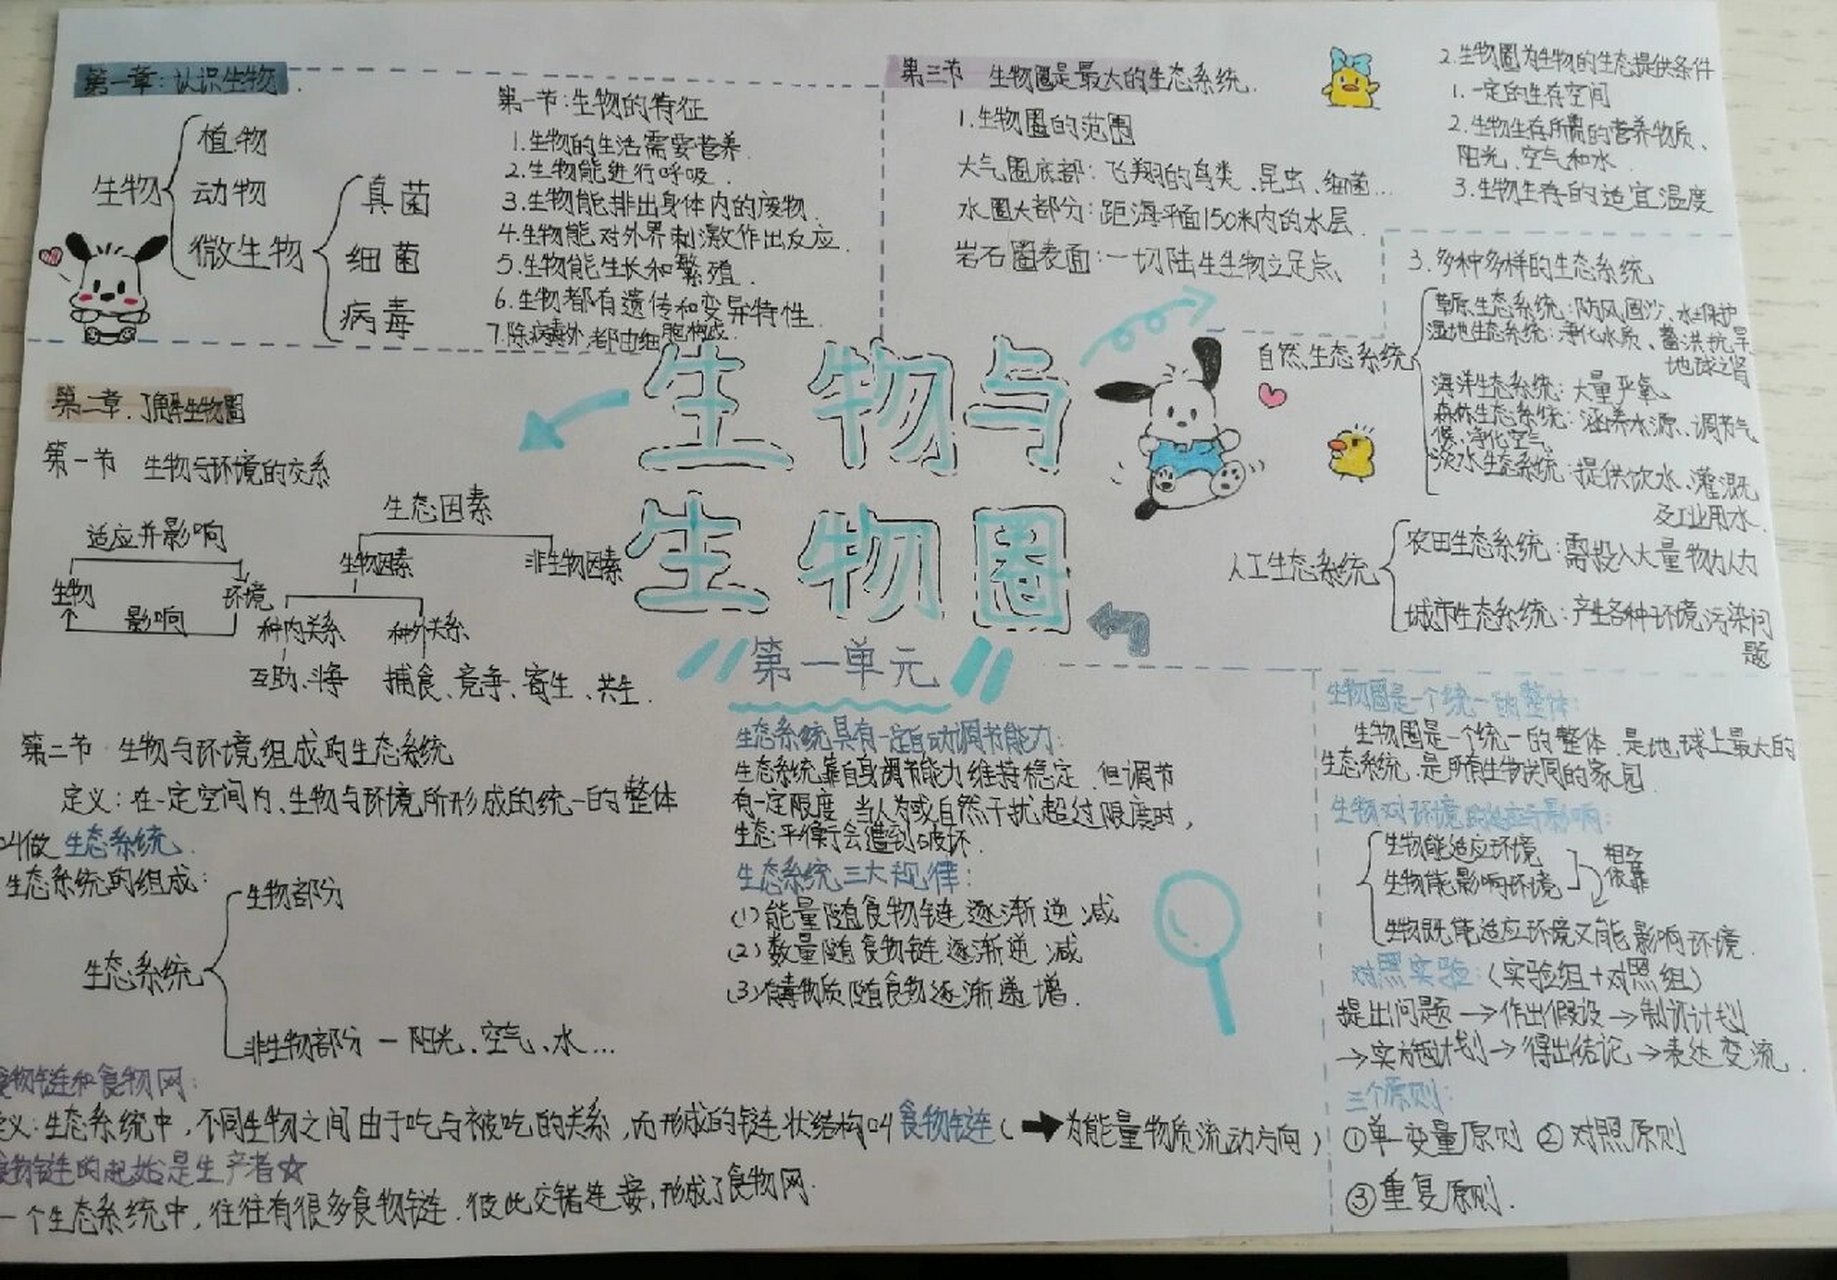 第一章：认识生物
生物
植物
动物
微生物
真菌
细菌
病毒
第一节：生物的特征
1.生物的生活需要营养
2.生物能进行呼吸.
3.生物能排出身体内的废物.
4.生物能对外界刺激作出反应.
5.生物能生长和繁殖.
6.生物都有遗传和变异特性.
7.除病毒外,都由细胞构成.
第三节 生物圈是最大的生态系统.
1.生物圈的范围
大气圈底部：飞翔的鸟类、昆虫、细菌...
水圈大部分：距海平面150米内的水层.
岩石圈表面：一切陆生生物立足点、
2.生物圈为生物的生态提供条件
1.一定的生存空间
2.生物生存所需的营养物质、
阳光、空气和水.
3.生物生存的适宜温度
3.多种多样的生态系统
自然生态系统
草原生态系统：防风固沙、水土保护
湿地生态系统：净化水质、蓄洪抗旱
地球之肾
海洋生态系统：大量产氧.
森林生态系统：涵养水源、调节气
候、净化空气
淡水生态系统：提供饮水、灌溉
及工业用水.
人工生态系统
农田生态系统：需投入大量物力人力
城市生态系统：产生各种环境污染问
题
生物与
生物圈
第一单元
第二章.了解生物圈
第一节 生物与环境的交系
适应并影响
生物
环境
影响
生态因素
生物因素
非生物因素
种内关系
种外关系
互助、斗争
捕食、竞争、寄生、共生.
第二节 生物与环境组成的生态系统
定义：在一定空间内、生物与环境所形成的统一的整体
叫做 生态系统.
生态系统的组成：
生态系统
生物部分
非生物部分 — 阳光、空气、水...
物链和食物网：
义：生态系统中，不同生物之间由于吃与被吃的关系，而形成的链状结构叫食物链（➡为能量物质流动方向）
食物链的起始是生产者☆
一个生态系统中，往往有很多食物链.彼此交错连接，形成了食物网.
生态系统具有一定自动调节能力：
生态系统靠自身调节能力维持稳定.但调节
有一定限度.当人为或自然干扰超过限度时，
生态平衡会遭到破坏.
生态系统三大规律：
(1)能量随食物链逐渐递减
(2)数量随食物链逐渐递减
(3)有毒物质随食物逐渐递增.
生物圈是一个统一的整体：
生物圈是一个统一的整体.是地球上最大的
生态系统.是所有生物共同的家园.
生物对环境的适应与影响：
生物能适应环境
生物能影响环境
相互
依靠
生物既能适应环境又能影响环境.
对照实验：（实验组+对照组）
提出问题→作出假设→制订计划
→实施计划→得出结论→表达交流.
三个原则：
①单一变量原则 ②对照原则
③重复原则.